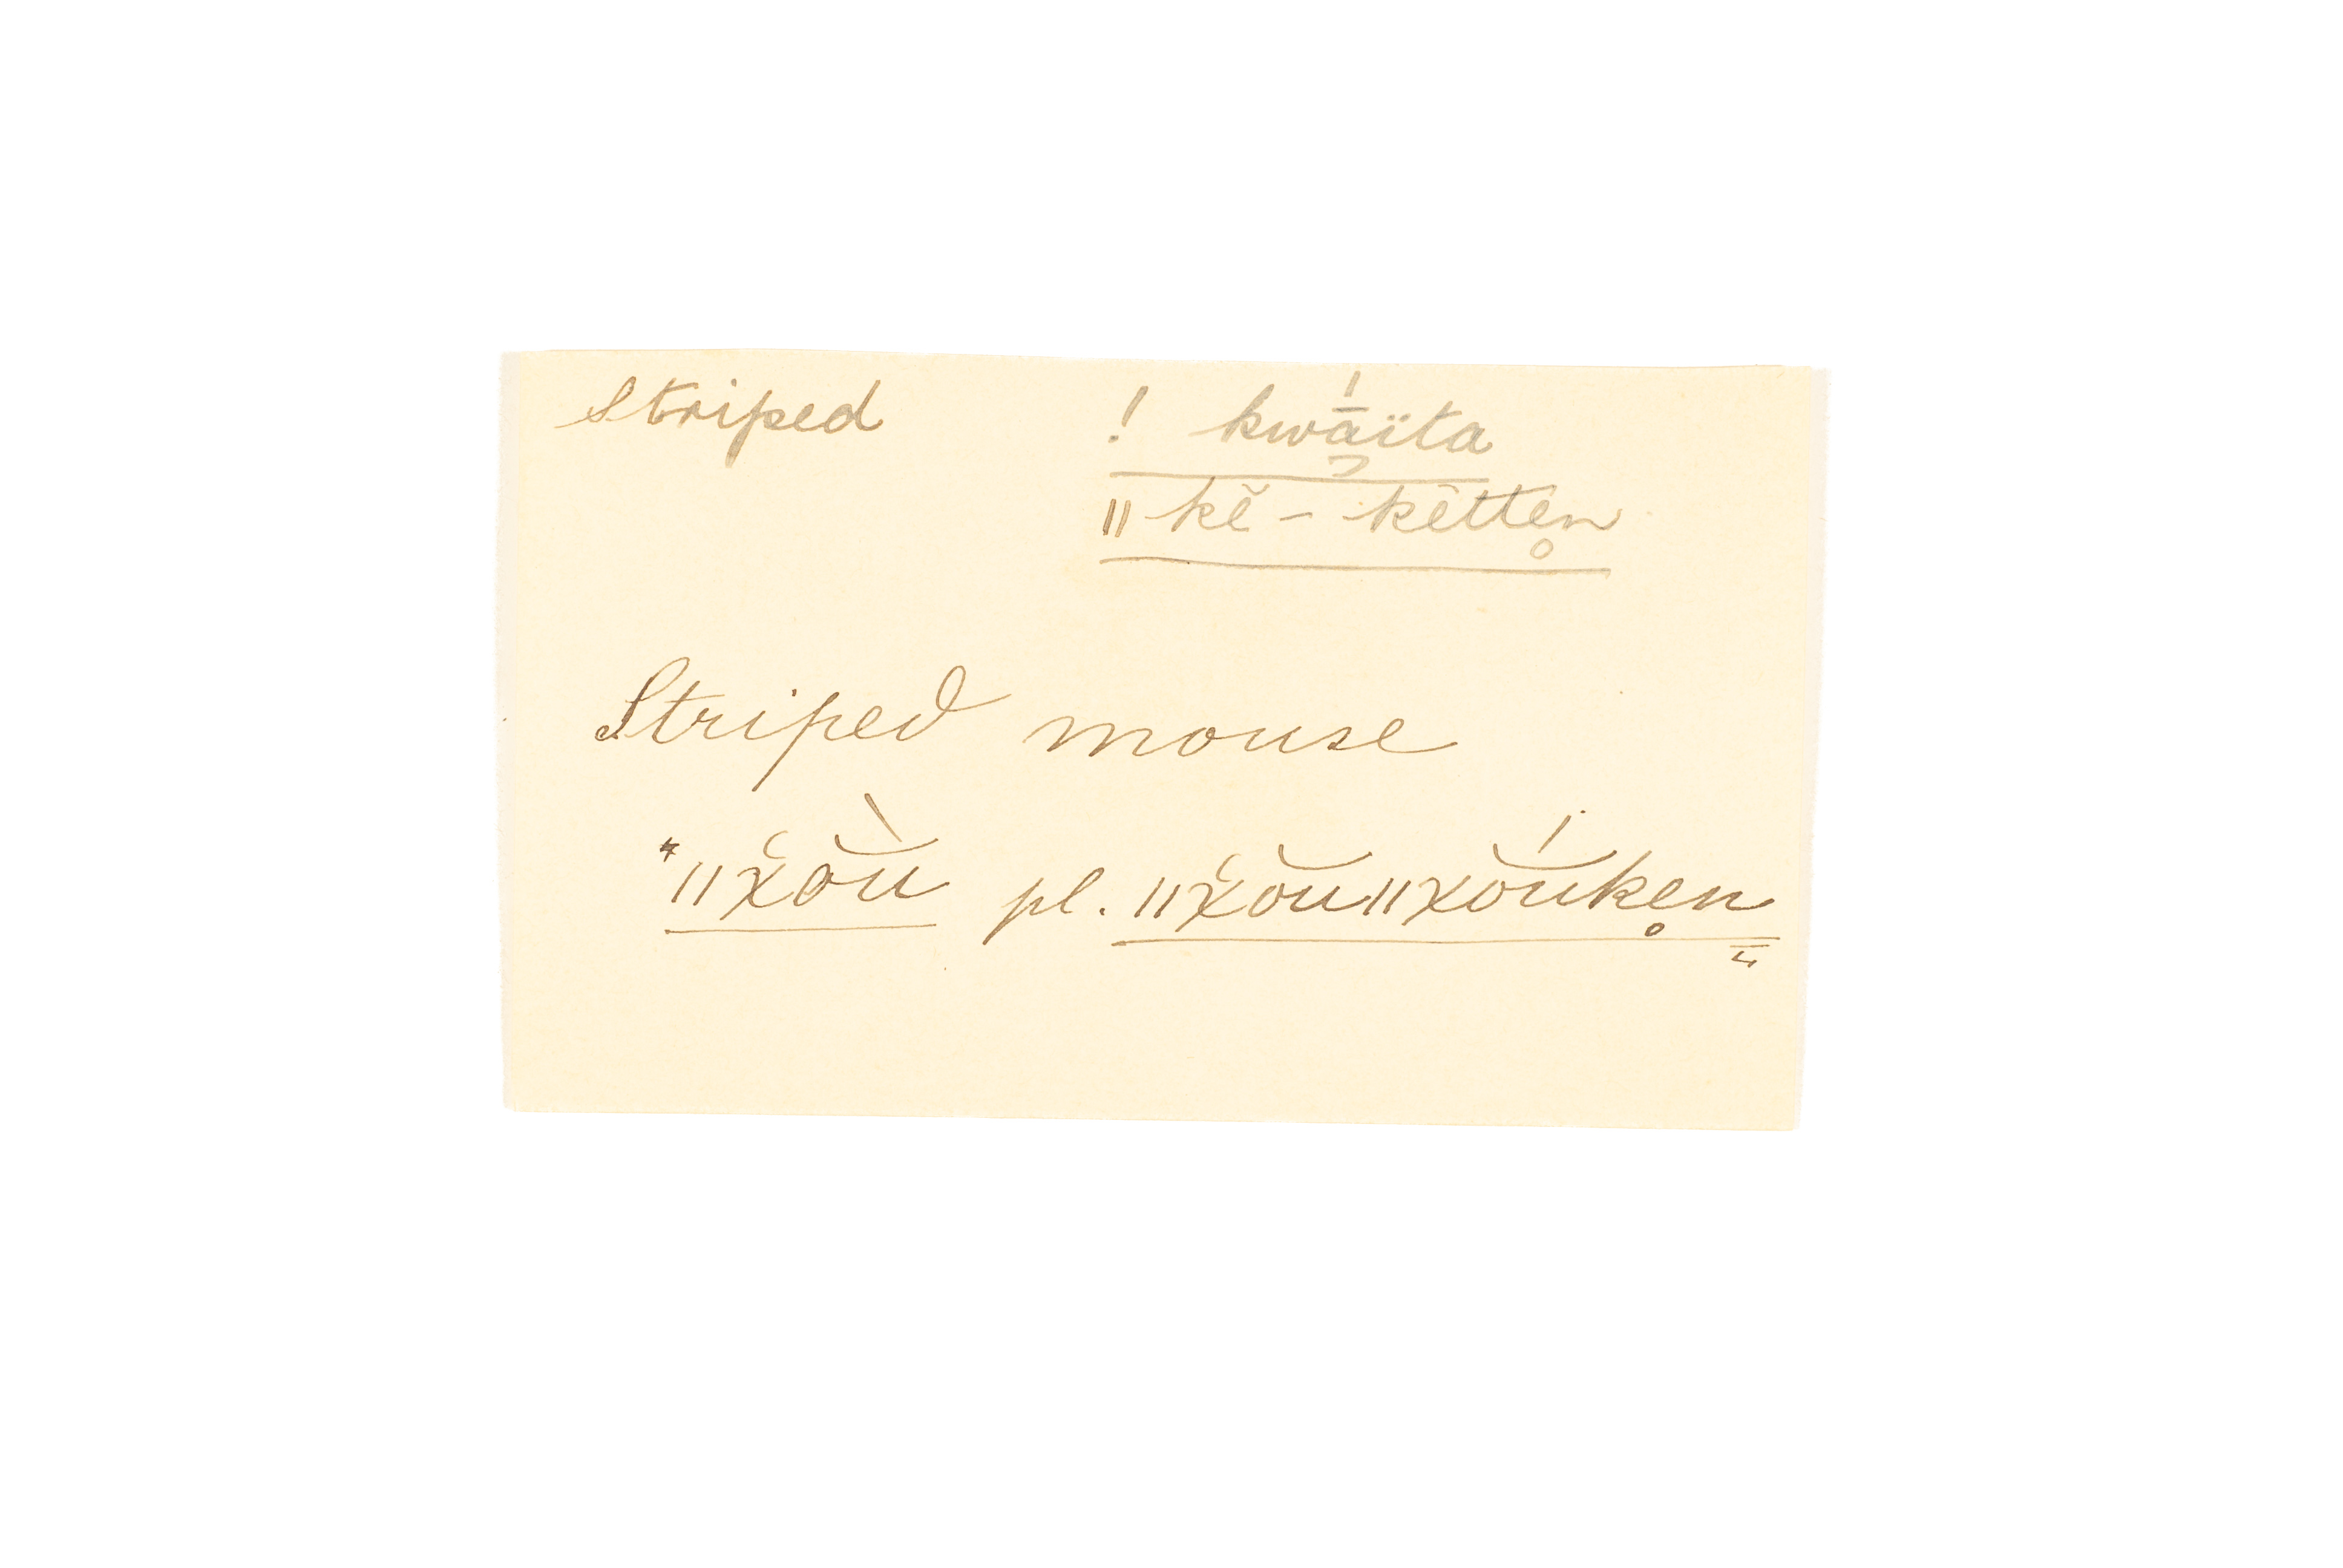 Striped ! kwā́ïta
ǁ kĕ - kĕtten̥
Striped mouse
ǁχŏ̀u pl. ǁχŏuǁχŏ́uke̥n